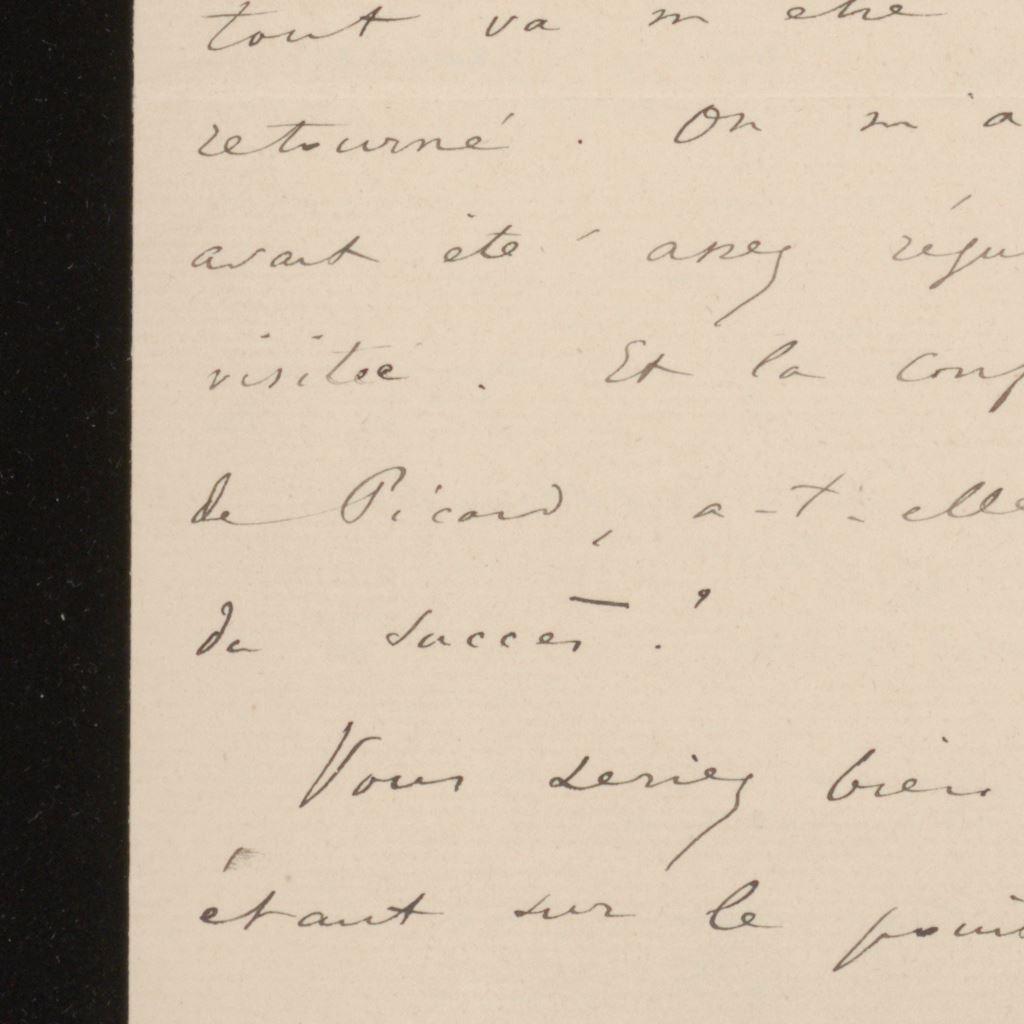 tout va m'être
retourné. On m'a
avait été assez régu
visitée. Et la conf
de Picard, a-t-elle
du succès ?
Vous seriez bien
étant sur le point